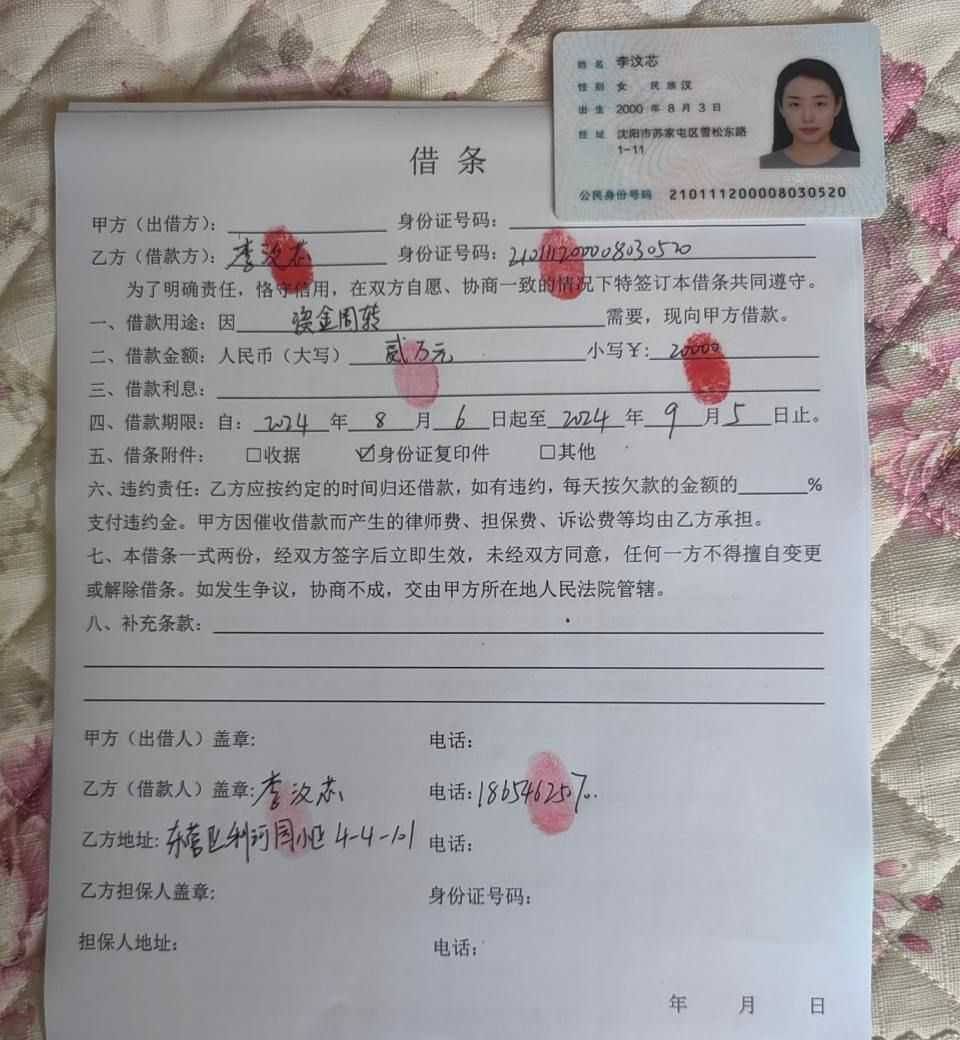 姓名 李汶芯
性别 女 民族 汉
出生 2000 年 8 月 3 日
住址 沈阳市苏家屯区雪松东路
1-11
公民身份号码 210111200008030520
借 条
甲方（出借方）：________ 身份证号码：________
乙方（借款方）：李汶芯 身份证号码：210111200008030520
为了明确责任，恪守信用，在双方自愿、协商一致的情况下特签订本借条共同遵守。
一、借款用途：因 资金周转 需要，现向甲方借款。
二、借款金额：人民币（大写） 贰万元 小写￥：20000
三、借款利息：
四、借款期限：自：2024 年 8 月 6 日起至 2024 年 9 月 5 日止。
五、借条附件： □收据 ☑身份证复印件 □其他
六、违约责任：乙方应按约定的时间归还借款，如有违约，每天按欠款的金额的______%
支付违约金。甲方因催收借款而产生的律师费、担保费、诉讼费等均由乙方承担。
七、本借条一式两份，经双方签字后立即生效，未经双方同意，任何一方不得擅自变更
或解除借条。如发生争议，协商不成，交由甲方所在地人民法院管辖。
八、补充条款：
甲方（出借人）盖章： 电话：
乙方（借款人）盖章：李汶芯 电话：186546257
乙方地址：东营区利河园小区 4-4-101 电话：
乙方担保人盖章： 身份证号码：
担保人地址： 电话：
年 月 日